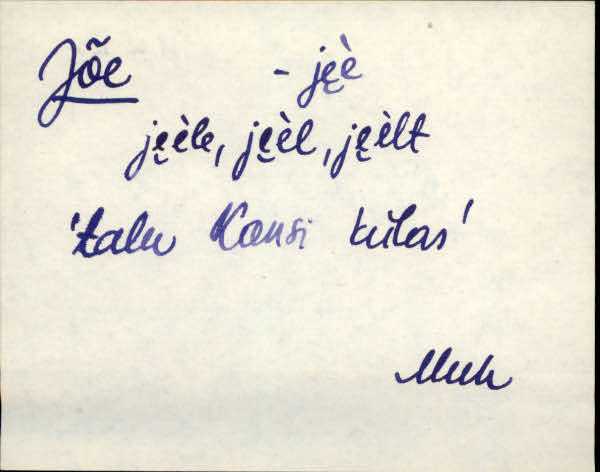 Jõe - ję̀è
ję̀èle, ję̀èl, ję̀èlt
'talu Kansi külas'
Muh